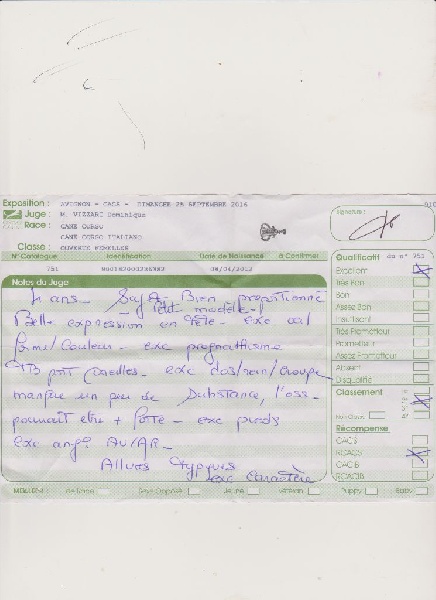 Exposition : AVIGNON - CACS - DIMANCHE 25 SEPTEMBRE 2016
Juge : M. VIZZARI Dominique
Race : CANE CORSO
CANE CORSO ITALIANO
Classe : OUVERTE FEMELLES
signature :
N° Catalogue Identification Date de Naissance à Confirmer
751 04/04/2012
Notes du Juge
4 ans - Bien proportionné
petit modèle -
Belle expression en tête - exc
forme/couleur - exc prognathisme
TB port oreilles - exc dos/rein/croupe
manque un peu de substance, l'oss.
pourrait être + forte - exc pieds
exc ang° AV/AR -
Allures typiques
exc caractère
Qualificatif du n° 751
Excellent
Très Bon
Bon
Assez Bon
Insuffisant
Très Prometteur
Prometteur
Assez Prometteur
Absent
Disqualifié
Classement
Non Classé
Récompense
CACS
RCACS
CACIB
RCACIB
MEILLEUR : de Race Sexe Opposé Jeune Vétéran Puppy Baby